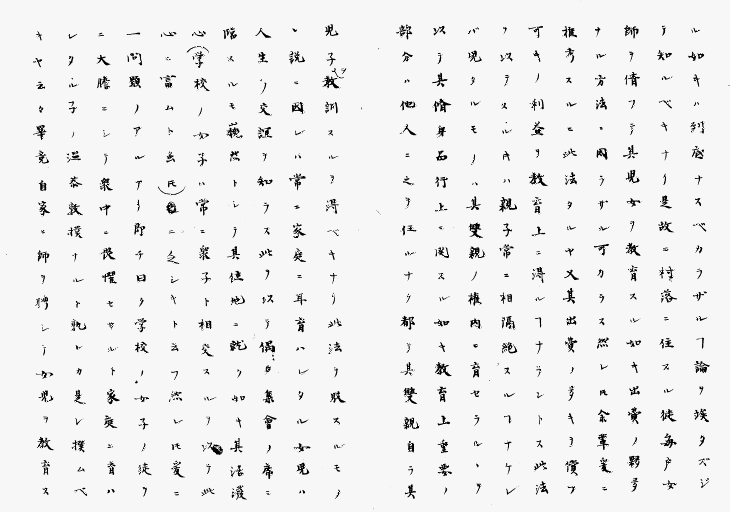 ル如キハ到底ナスベカラザルヿ論ヲ俟タズシ
テ知ルベキナリ是故ニ村落ニ住スル徒毎戸女
師ヲ倩フテ其児女ヲ教育スル如キ出費ノ夥多
ナル方法ニ因ラザル可カラス然レ𪜈余輩爰ニ
推考スルニ此法タルヤ又其出費ノ多キヲ償フ
可キノ利益ヲ教育上ニ得ルヿナラントス此法
ヲ以テスルキハ親子常ニ相隔絶スルヿナケレ
バ児タルモノハ其雙親ノ膝内ニ育セラルヽヲ
以テ其脩身品行上ニ関スル如キ教育上重要ノ
部分ハ他人ニ之ヲ任ルナク都テ其雙親自ラ其
児子教訓スルヲ得ベキナリ此法ヲ駁スルモノ
ヽ説ニ因レハ常ニ家庭ニ耳育ハレタル女児ハ
人生ノ交誼ヲ知ラス此ヲ以テ偶集會ノ席ニ
臨スルモ藐然トシテ其住地ニ就ク如キ其活溌
心(学校ノ女子ハ常ニ衆子ト相交スルヲ以テ此
心ニ富ムト云𪜈)ニ乏シキト云フ然レ𪜈爰ニ
一問題ノアルアリ即チ曰ク学校ノ女子ノ徒ラ
ニ大膽ニシテ衆中ニ畏懼セサルト家庭ニ育ハ
レタル子ノ温恭敦撲ナルト孰レカ是レ撲ムベ
キヤ云々畢竟自家ニ師ヲ聘シテ女児ヲ教育ス